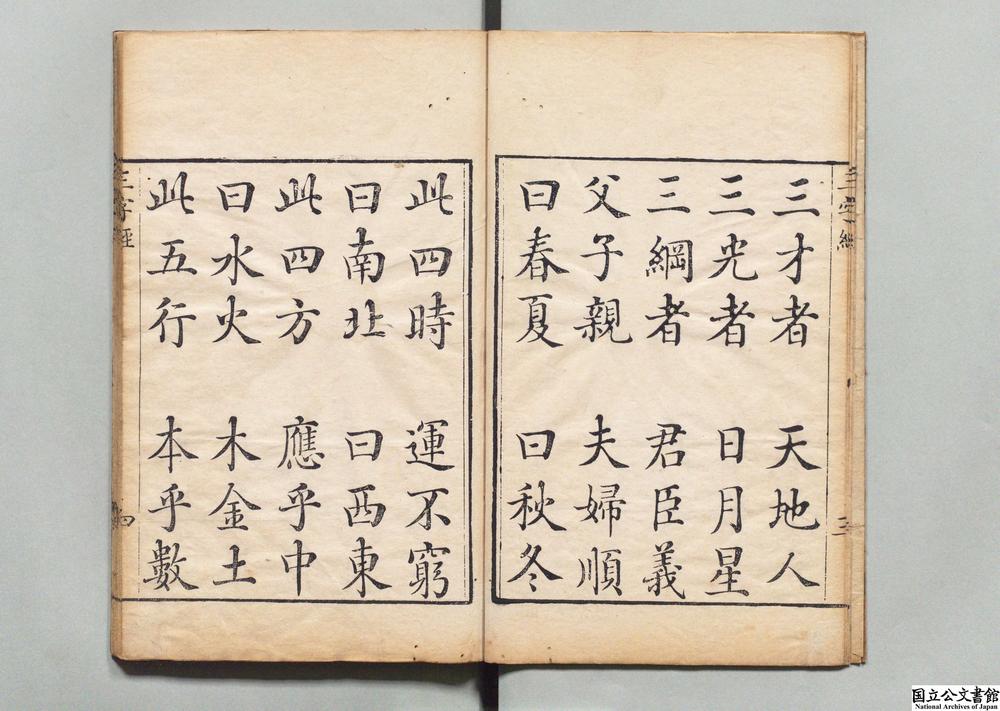 三才者 天地人
三光者 日月星
三綱者 君臣義
父子親 夫婦順
曰春夏 曰秋冬
三
此四時 運不窮
曰南北 曰西東
此四方 應乎中
曰水火 木金土
此五行 本乎數
三字經
四
国立公文書館
National Archives of Japan